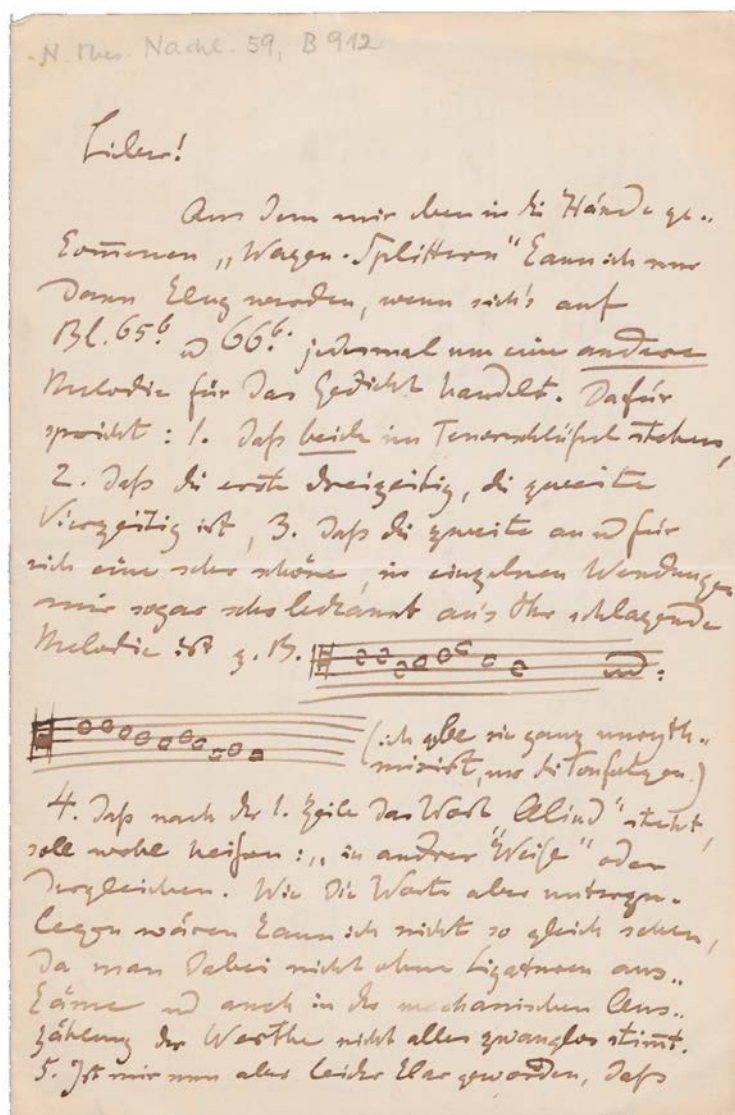 N. Mus. Nachl. 59, B 912
Lieber!
Aus dem mir eben in die Hände ge„
kom̄enen „Wagen-Splittern" kann ich nur
dann klug werden, wenn sich's auf
Bl. 65b. u 66b. jedesmal um eine andere
Melodie für das Gedicht handelt. Dafür
spricht: 1. daß beide im Tenorschlüßel stehen,
2. daß die erste dreizeitig, die zweite
vierzeitig ist, 3. daß die zweite an u für
sich eine sehr schöne, in einzelnen Wendungen
mir sogar sehr bekannt an's Ohr schlagende
Melodie ist z. B. u:
(ich gebe sie ganz unryth„
misirt, nur die Tonfolgen.)
4. daß nach der 1. Zeile das Wort Aliud" steht,
soll wohl heißen: „in andrer Weise" oder
dergleichen. Wie die Worte aber unterzu„
legen wären kann ich nicht so gleich sehen,
da man dabei nicht ohne Ligaturen aus„
käme u auch in der mechanischen Aus„
zählung der Werthe nicht alles zwanglos stim̄t.
5. Ist mir nun aber leider klar geworden, daß